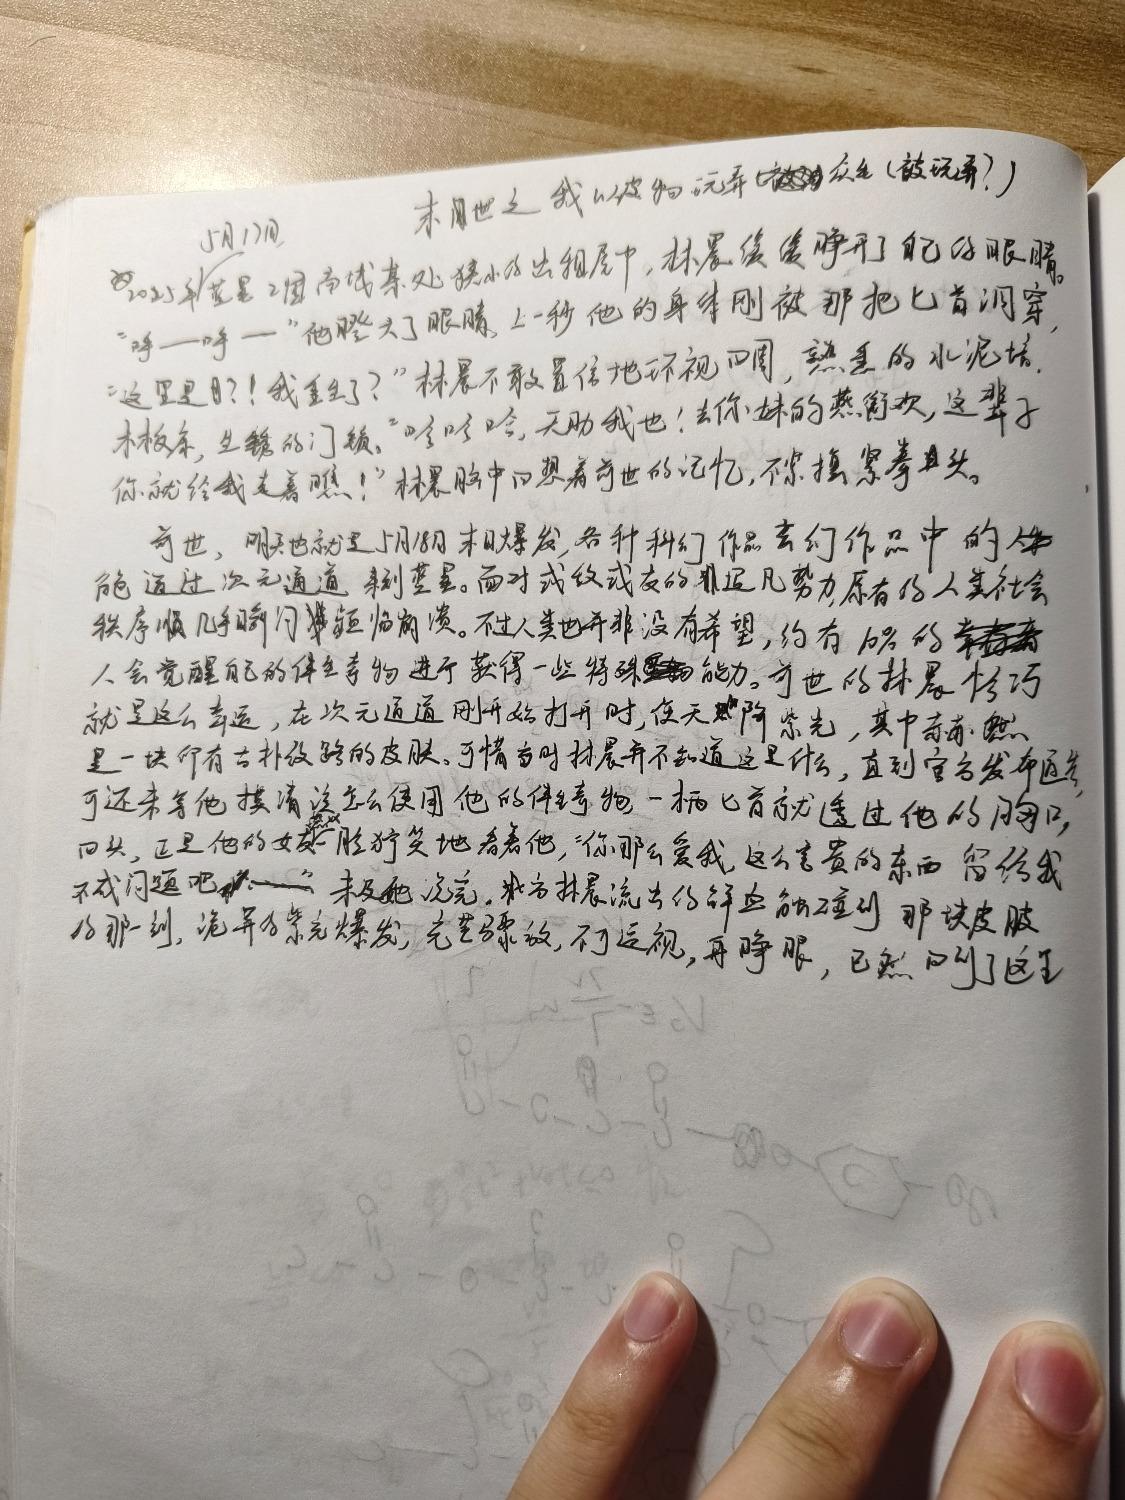 末日世之我以皮物玩弄众生（被玩弄？）
5月17日
2025年蓝星Z国南城某处狭小的出租屋中，林晨缓缓睁开了自己的眼睛。
“呼——呼——”他瞪大了眼睛，上一秒他的身体刚被那把匕首洞穿，
“这里是？！我重生了？”林晨不敢置信地环视四周，熟悉的水泥墙，
木板床，生锈的门锁。“哈哈哈，天助我也！去你妹的燕衔欢，这辈子
你就给我走着瞧！”林晨脑中回想着前世的记忆，不禁攥紧拳头。
前世，明天也就是5月18日末日爆发，各种科幻作品玄幻作品中的
能通过次元通道来到蓝星。面对或敌或友的非凡势力，原有的人类社会
秩序顺几乎瞬间就濒临崩溃。不过人类也并非没有希望，约有10%的
人会觉醒自己的伴生奇物进而获得一些特殊能力。前世的林晨恰巧
就是这么幸运，在次元通道刚开始打开时，便天降紫光，其中赫然
是一块印有古朴纹路的皮肤。可惜当时林晨并不知道这是什么，直到官方发布通告，
可还未等他摸清该怎么使用他的伴生奇物，一柄匕首就透过他的胸口，
回头，正是他的女友一脸狞笑地看着他，“你那么爱我，这么宝贵的东西留给我
不成问题吧——”未及她说完，
的那一刻，诡异的紫光爆发，光芒骤放，不可逼视，再睁眼，已然回到了这里